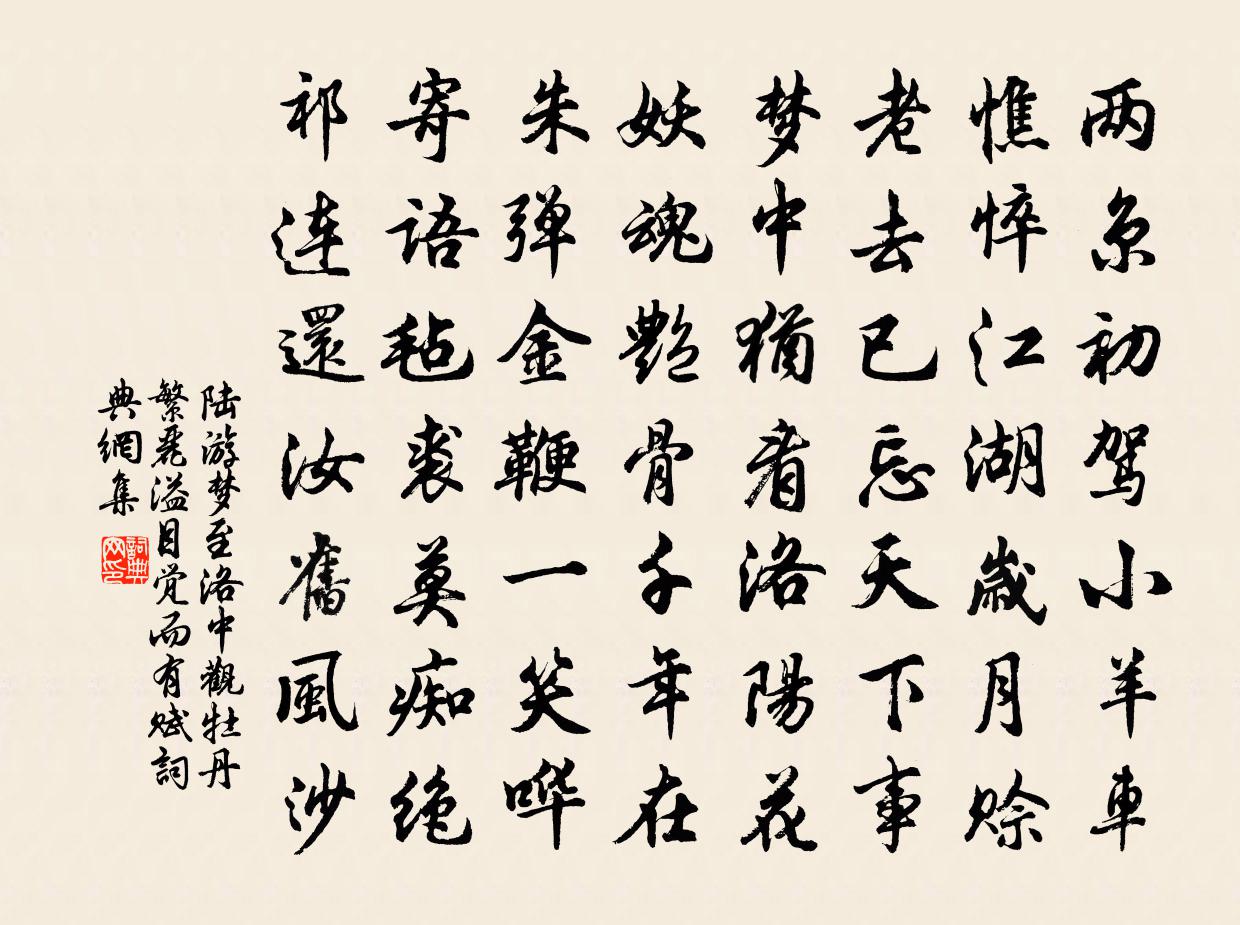 两京初驾小羊車
憔悴江湖歳月赊
老去已忘天下事
梦中犹看洛陽花
妖魂艷骨千年在
朱弹金鞭一笑哗
寄语毡裘莫痴绝
祁连還汝舊風沙
陆游梦至洛中觀牡丹
繁麗溢目觉而有赋詞
典網集
詞典网印